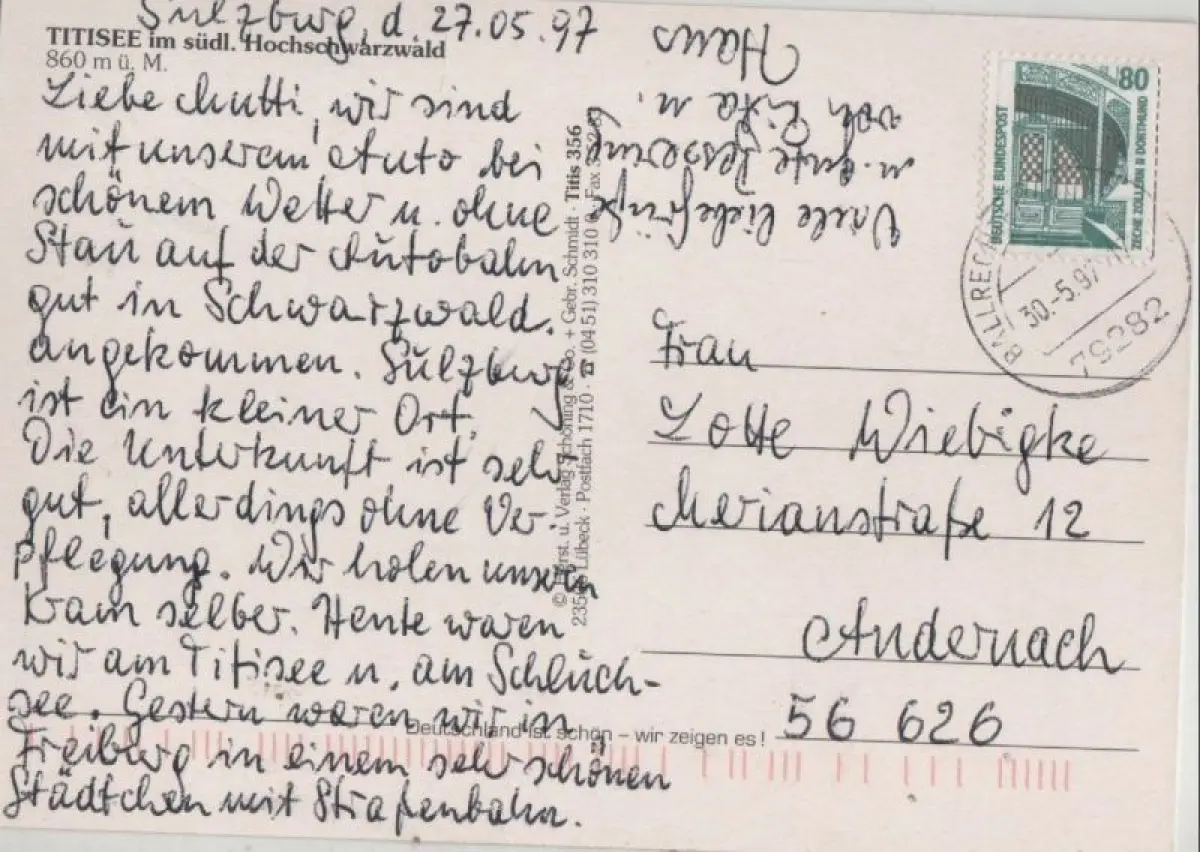 Sulzburg, d. 27.05.97
TITISEE im südl. Hochschwarzwald
860 m ü. M.
Liebe Mutti, wir sind
mit unserem Auto bei
schönem Wetter u. ohne
Stau auf der Autobahn
gut in Schwarzwald.
angekommen. Sulzburg
ist ein kleiner Ort.
Die Unterkunft ist sehr
gut, allerdings ohne Ver-
pflegung. Wir holen unsern
Kram selber. Heute waren
wir am Titisee u. am Schluch-
see. Gestern waren wir in
Freiburg in einem sehr schönen
Städtchen mit Straßenbahn.
Viele liebe Grüße
u. gute Besserung
von Rita u.
Hans
Verlag Schöning & Co. + Gebr. Schmidt · Titis 356
Lübeck · Postfach 1710 · ☎ (04 51) 310 310 Fax
80
DEUTSCHE BUNDESPOST
ZECHE ZOLLERN II DORTMUND
BALLREC
30.-5.97
79282
Frau
Lotte Wiebigke
Merianstraße 12
Andernach
56 626
Deutschland ist schön – wir zeigen es!